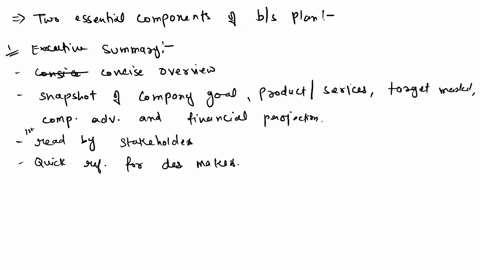 ⇒ Two essential components of b/s plan:-
1, Executive Summary:-
- concise overview
- snapshot of company goal, product/serices, target market,
comp. adv. and financial projection.
- 1st read by stakeholdes
- Quick ref. for des makes.